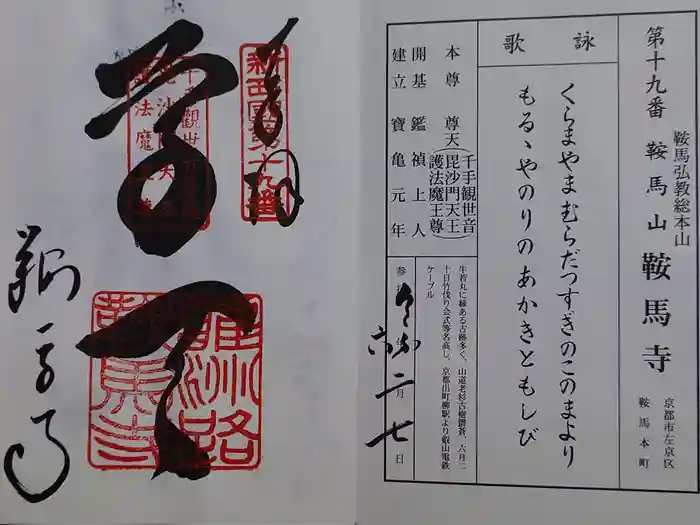 第十九番 鞍馬山 鞍馬寺
鞍馬弘教総本山
京都市左京区
鞍馬本町
詠歌
くらまやま むらだつすぎのこのまより
もるゝやのりのあかきともしび
本尊 尊天(千手観世音 毘沙門天王 護法魔王尊)
開基 鑑禎上人
建立 寶亀元年
牛若丸に縁ある古蹟多く、山道老杉古樹欝蒼、六月二
十日竹伐り会式等名高し、京都出町柳駅より叡山電鉄
ケーブル
二月七日
奉拝
新西國第十九番
尊天
雍州路
鞍馬寺
鞍馬寺